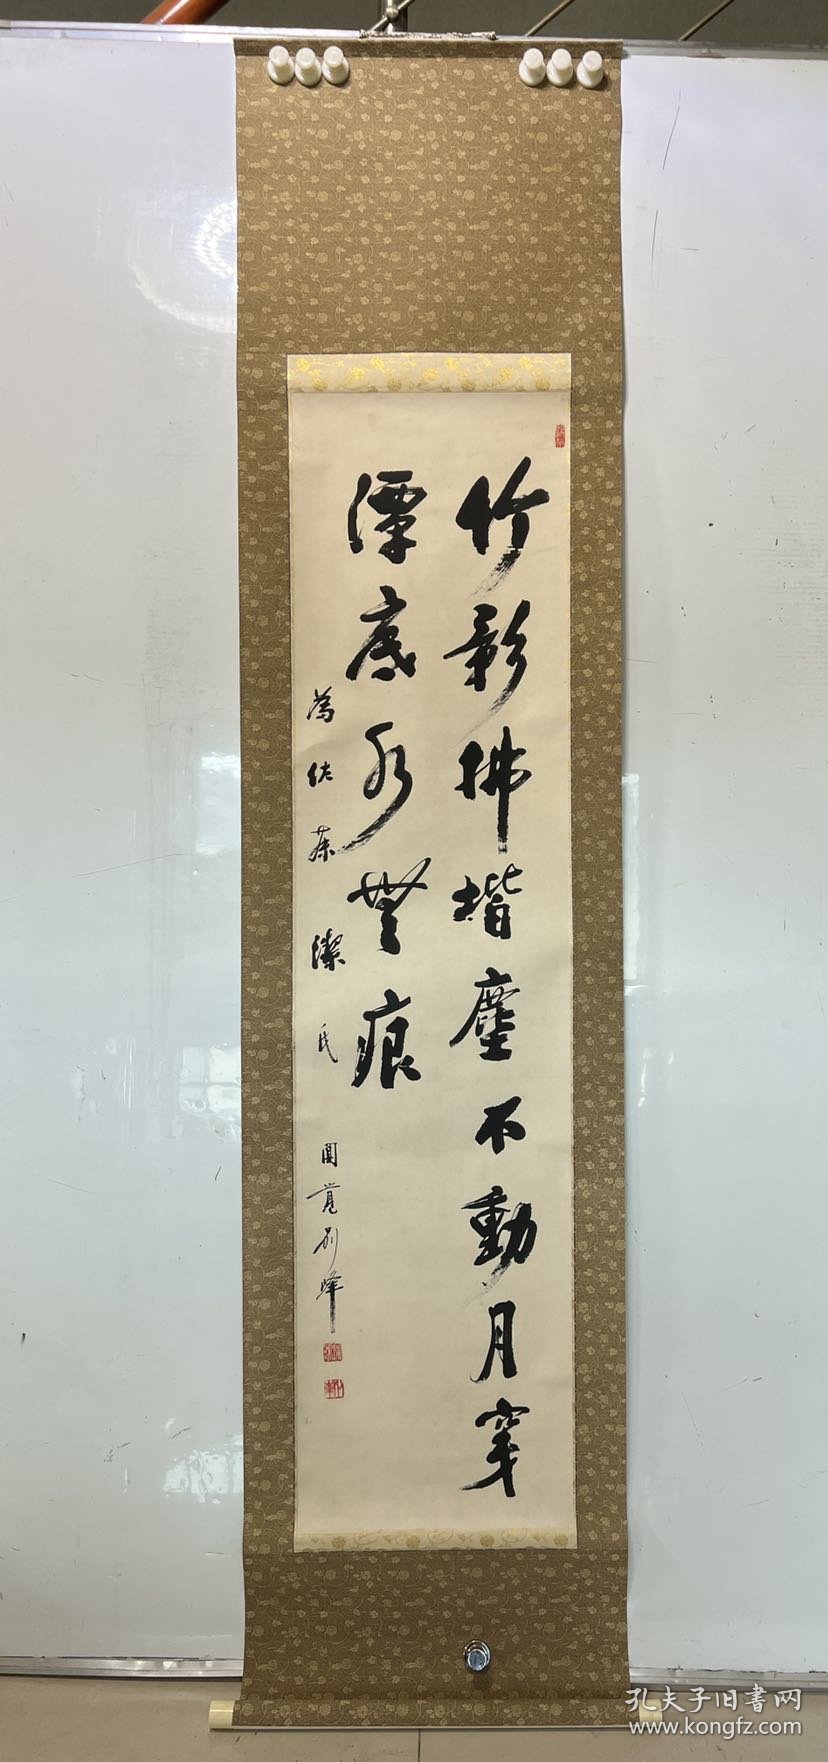 竹影拂堦塵不動月穿
潭底水無痕
為佐藤潔氏
圓覚別峰
孔夫子旧書网
www.kongfz.com